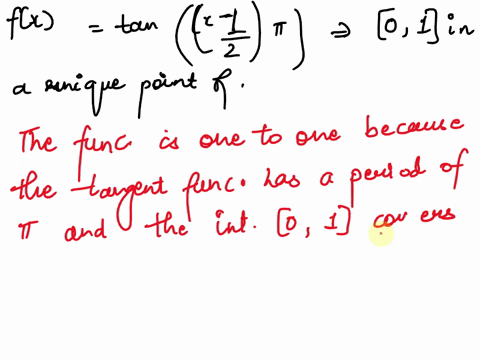 f(x) = tan ((x - 1/2) π) ⇒ [0, 1] in
a unique point of.
The func. is one to one because
the tangent func. has a period of
π and the int. [0, 1] covers